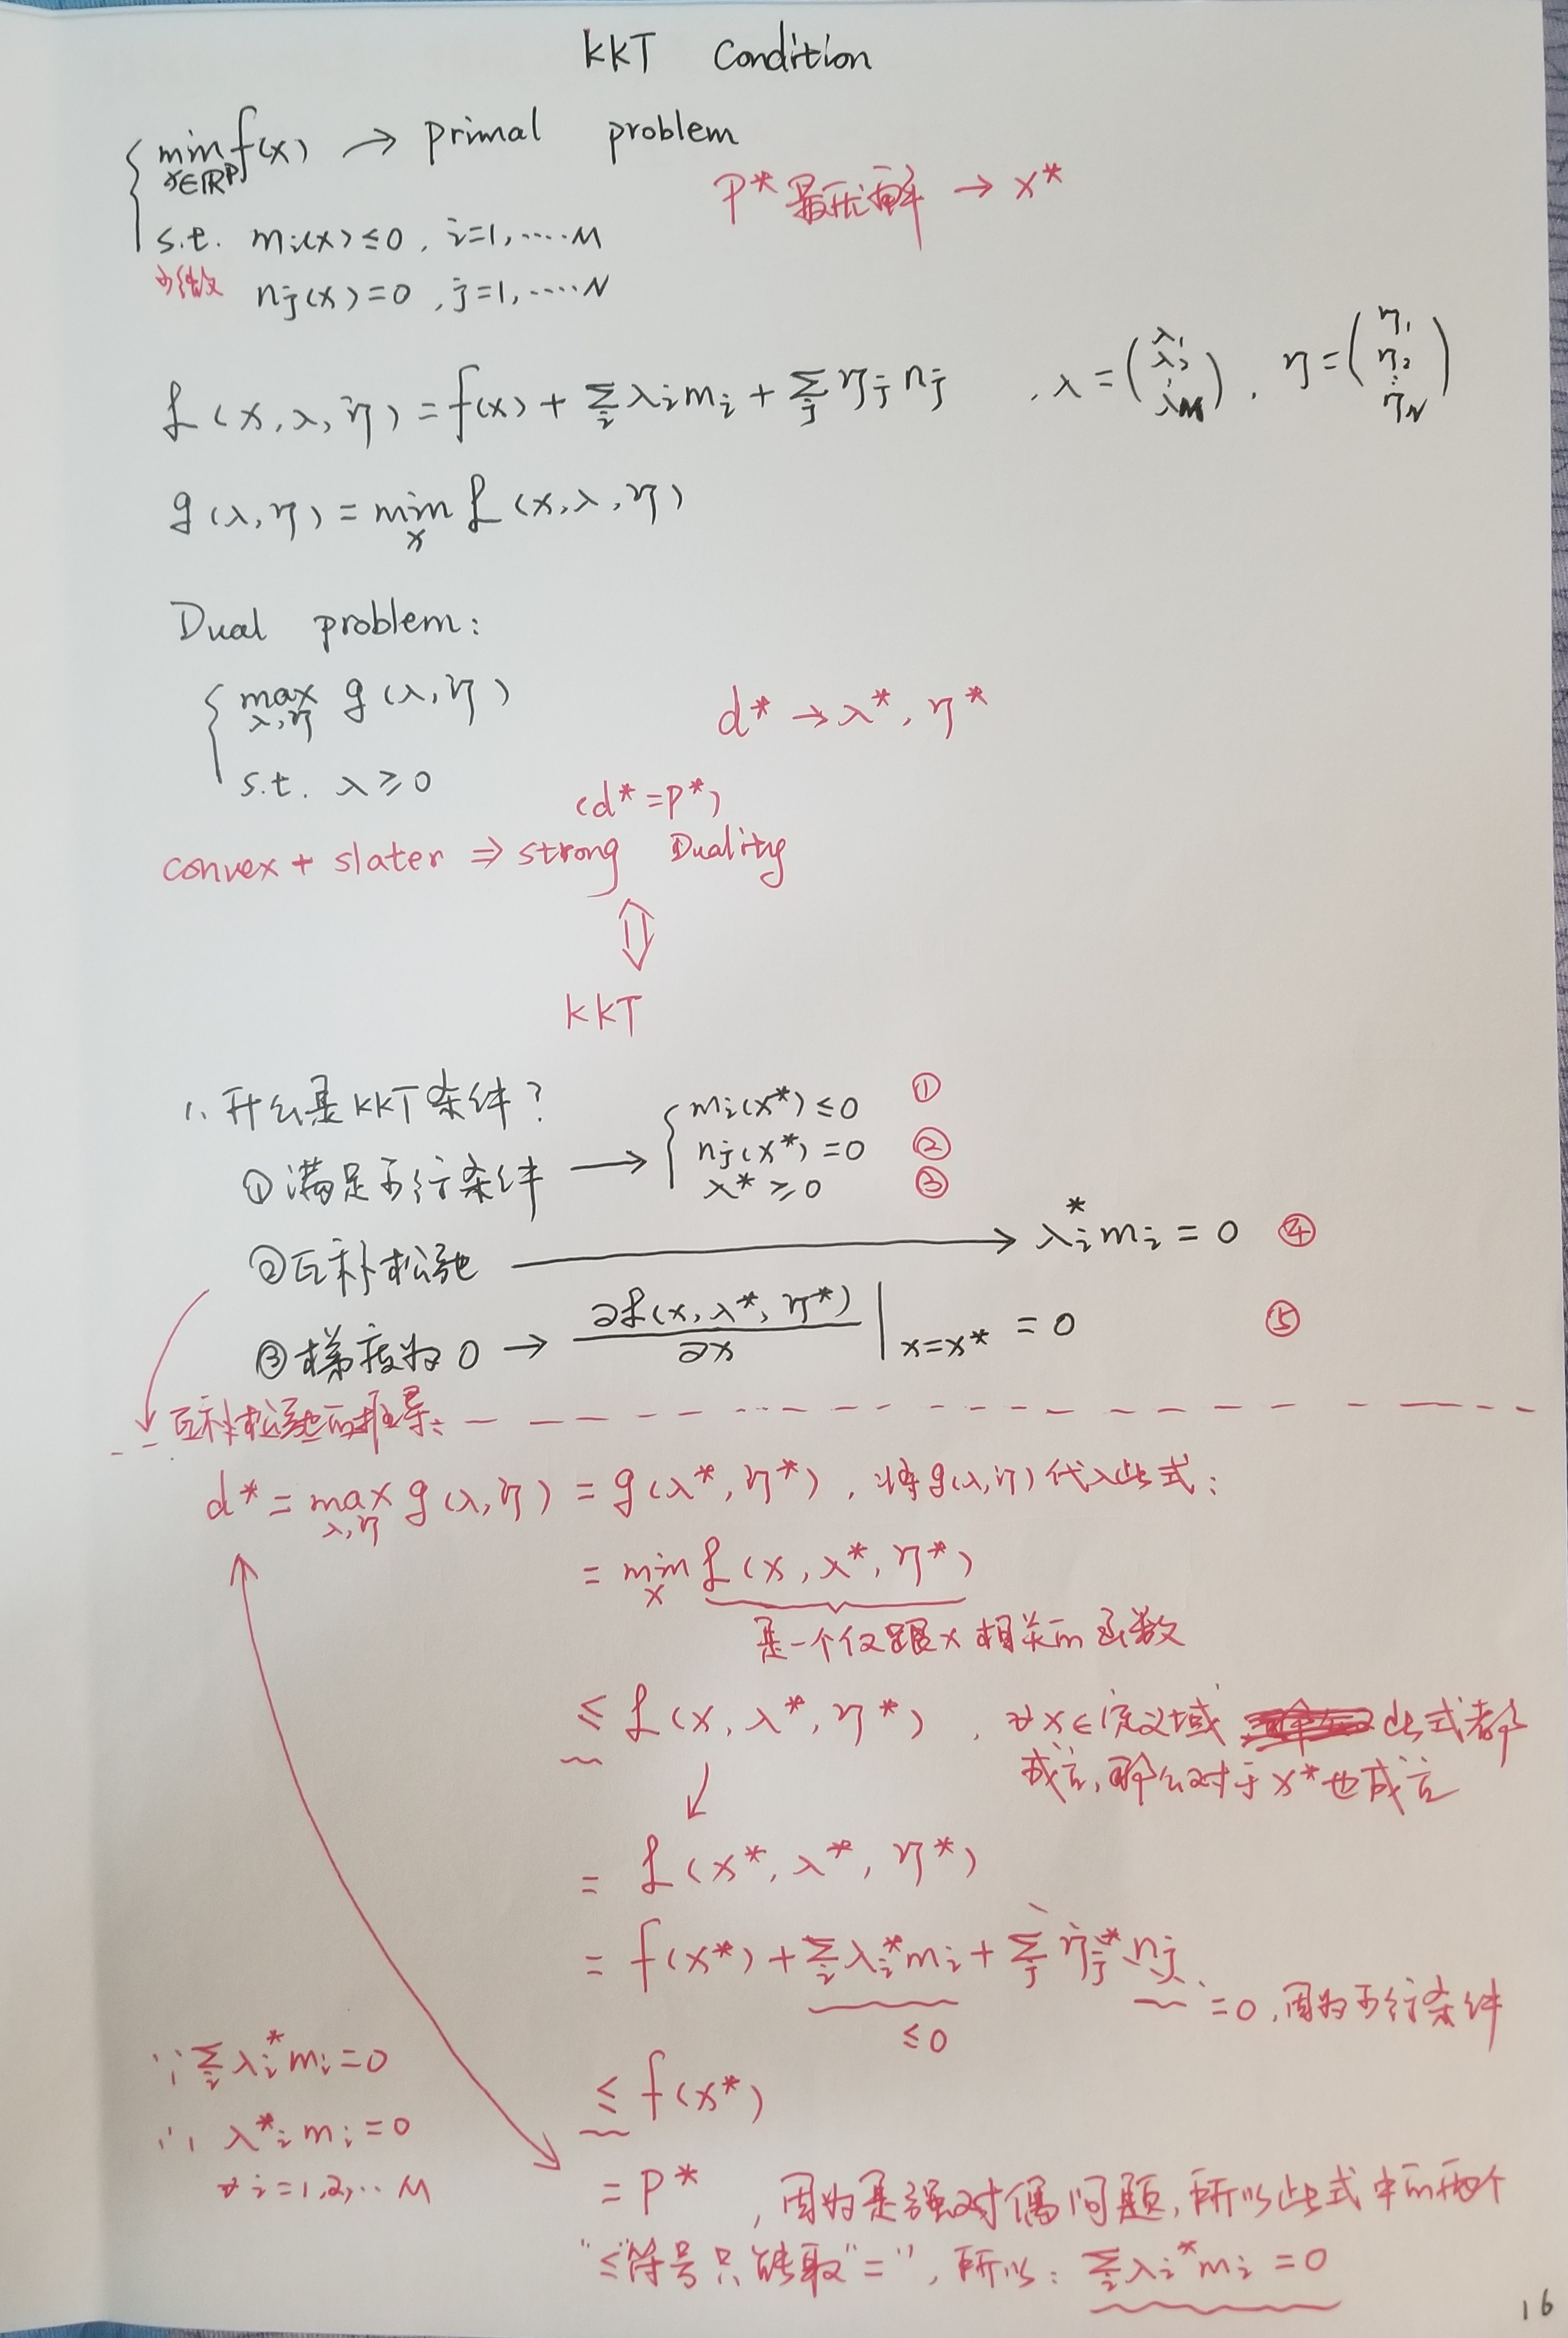 KKT Condition
min f(x) → primal problem
x∈ℝᴾ
P* 最优解 → x*
s.t. mᵢ(x) ≤ 0, i=1,....M
可微 nⱼ(x) = 0, j=1,....N
ℒ(x,λ,η) = f(x) + Σᵢ λᵢmᵢ + Σⱼ ηⱼnⱼ , λ = (λ₁ λ₂ ⋮ λM), η = (η₁ η₂ ⋮ ηN)
g(λ,η) = min ℒ(x,λ,η)
x
Dual problem:
max g(λ,η) d* → λ*, η*
λ,η
s.t. λ ≥ 0
(d* = P*)
convex + slater ⇒ strong Duality
⇕
KKT
1、什么是KKT条件?
①满足可行条件 → { mᵢ(x*) ≤ 0 ①
nⱼ(x*) = 0 ②
λ* ≥ 0 ③
②互补松弛 → λᵢ*mᵢ = 0 ④
③梯度为0 → ∂ℒ(x,λ*,η*)/∂x |x=x* = 0 ⑤
互补松弛的推导:
d* = max g(λ,η) = g(λ*,η*), 将g(λ,η)代入此式:
λ,η
= min ℒ(x,λ*,η*)
x
是一个仅跟x相关的函数
≤ ℒ(x,λ*,η*), ∀x∈定义域 此式都
成立,那么对于x*也成立
= ℒ(x*,λ*,η*)
= f(x*) + Σᵢ λᵢ*mᵢ + Σⱼ ηⱼ*nⱼ
≤0
=0,因为可行条件
≤ f(x*)
= P* ,因为是强对偶问题,所以此式中的两个
"≤"符号只能取"=",所以: Σᵢ λᵢ*mᵢ = 0
∵ Σᵢ λᵢ*mᵢ = 0
∴ λ*ᵢmᵢ = 0
∀ i=1,2,..M
16